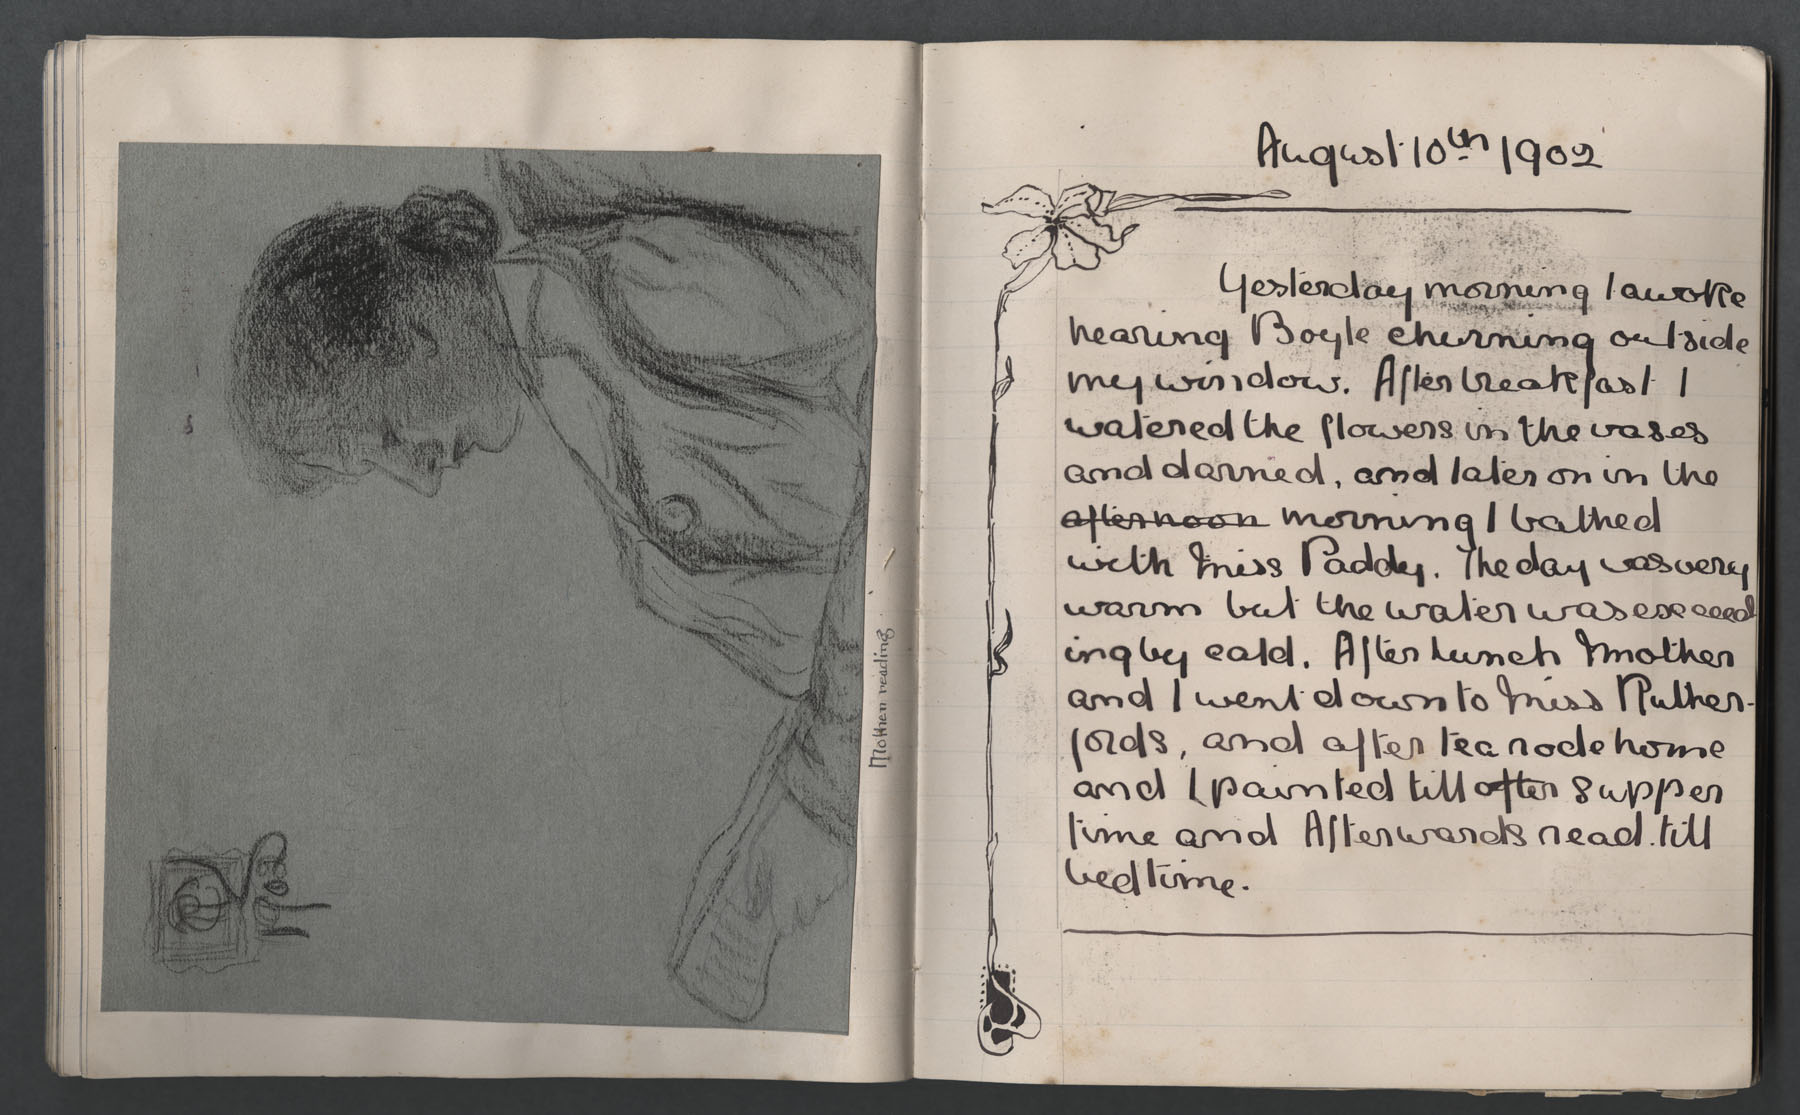 Mother reading.
August 10th 1902
Yesterday morning I awoke
hearing Boyle churning outside
my window. After breakfast I
watered the flowers in the vases
and darned, and later on in the
afternoon morning I bathed
with Miss Paddy. The day was very
warm but the water was exceed
ingly cold. After lunch Mother
and I went down to Miss Ruther-
fords, and after tea rode home
and I painted till after supper
time and Afterwards read till
bedtime.